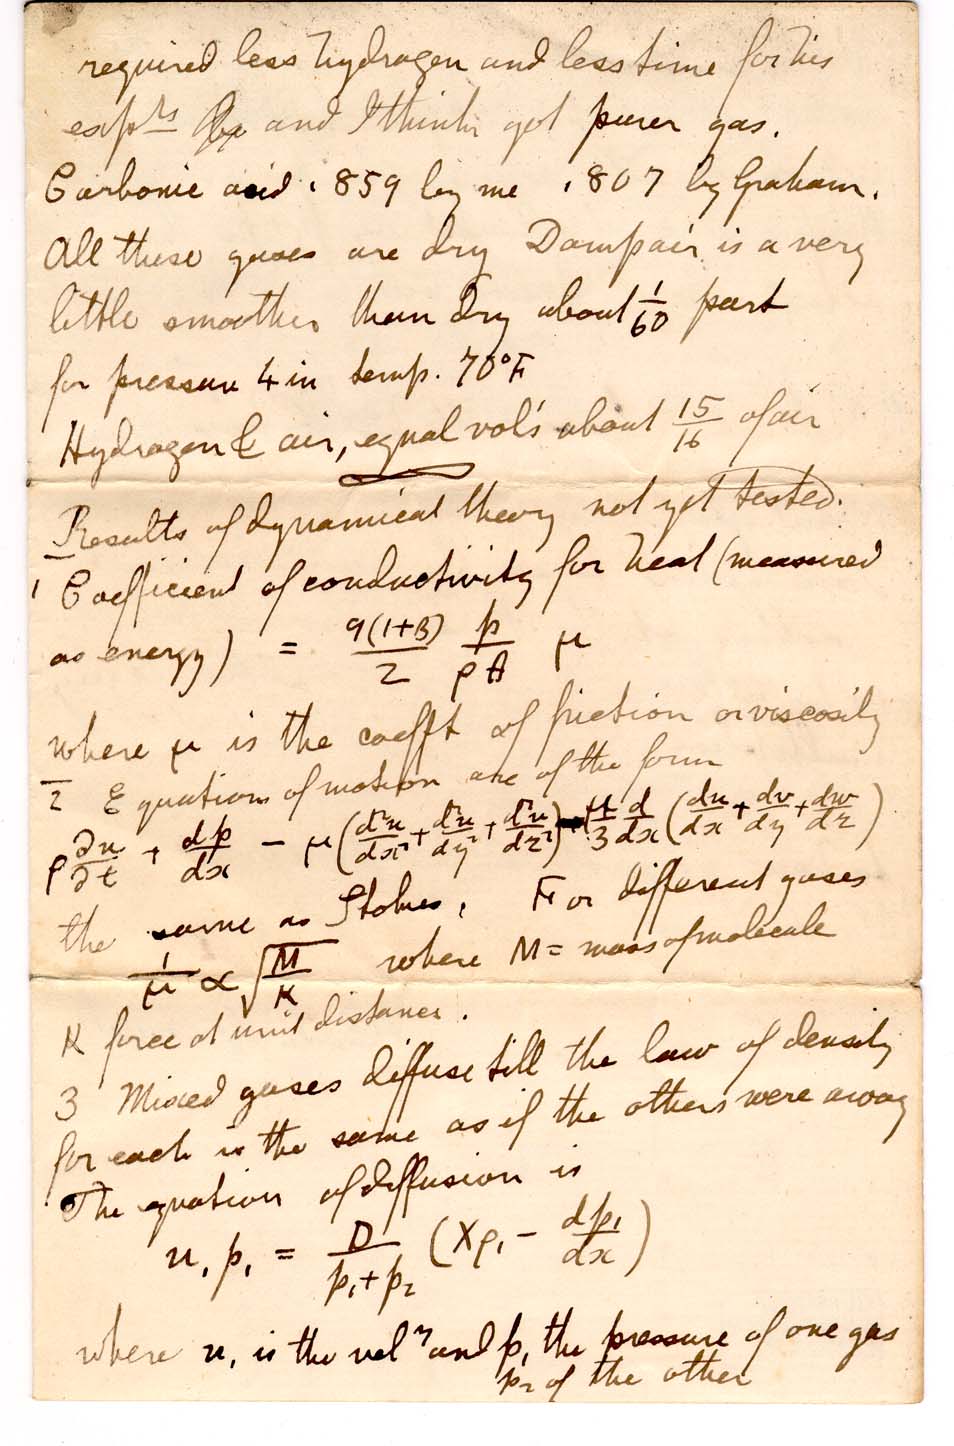 required less hydrogen and less time for his
exp^rs and I think got purer gas.
Carbonic acid .859 by me .807 by Graham.
All these gases are dry Damp air is a very
little smoother than dry about 1/60 part
for pressure 4 in temp. 70°F
Hydrogen & air, equal vol^s about 15/16 of air
Results of dynamical theory not yet tested.
1 Coefficient of conductivity for heat (measured
as energy) = 9(1+β)/2 p/ρθ μ
where μ is the coefft of friction or viscosity
2 Equations of motion are of the form
ρ ∂u/∂t + dp/dx - μ(d²u/dx² + d²u/dy² + d²u/dz²) - μ/3 d/dx (du/dx + dv/dy + dw/dz)
the same as Stokes. For different gases
1/μ ∝ √(M/K) where M = mass of molecule
K force at unit distance.
3 Mixed gases diffuse till the law of density
for each is the same as if the others were away
The equation of diffusion is
u₁ p₁ = D/(p₁+p₂) (Xρ₁ - dp₁/dx)
where u₁ is the vel^y and p₁ the pressure of one gas
p₂ of the other